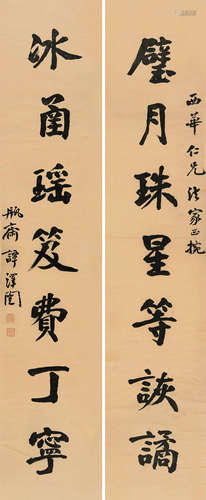 西華仁兄法家正捥
璧月珠星等詼譎
冰圅瑶笈費丁寧
瓶齋譚澤闓